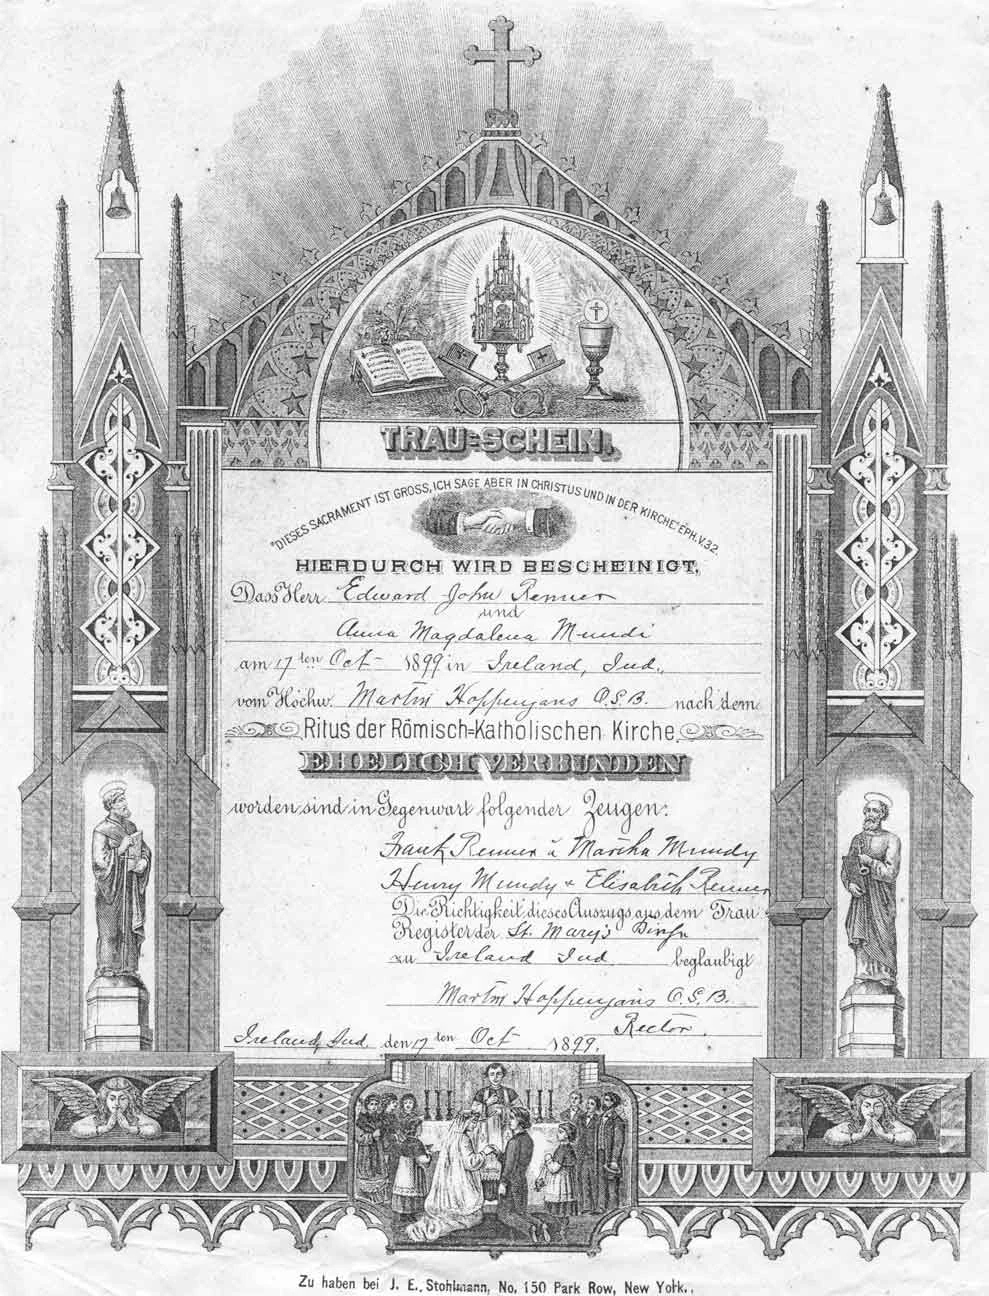 TRAU=SCHEIN.
"DIESES SACRAMENT IST GROSS, ICH SAGE ABER IN CHRISTUS UND IN DER KIRCHE." EPH. V. 32.
HIERDURCH WIRD BESCHEINIGT,
Dass Herr Edward John Renner
und
Anna Magdalena Mundi
am 17ten Oct 1899 in Ireland, Ind.,
vom Hochw. Martin Hoppenjans O.S.B. nach dem
Ritus der Römisch=Katholischen Kirche,
EHELICH VERBUNDEN
worden sind in Gegenwart folgender Zeugen:
Frank Renner u Martha Mundy
Henry Mundy + Elisabeth Renner
Die Richtigkeit dieses Auszugs aus dem Trau
Register der St. Mary's
zu Ireland Ind beglaubigt
Martin Hoppenjans O.S.B.
Rector.
Ireland, Ind. den 17ten Oct 1899.
Zu haben bei J. E. Stohlmann, No. 150 Park Row, New York.